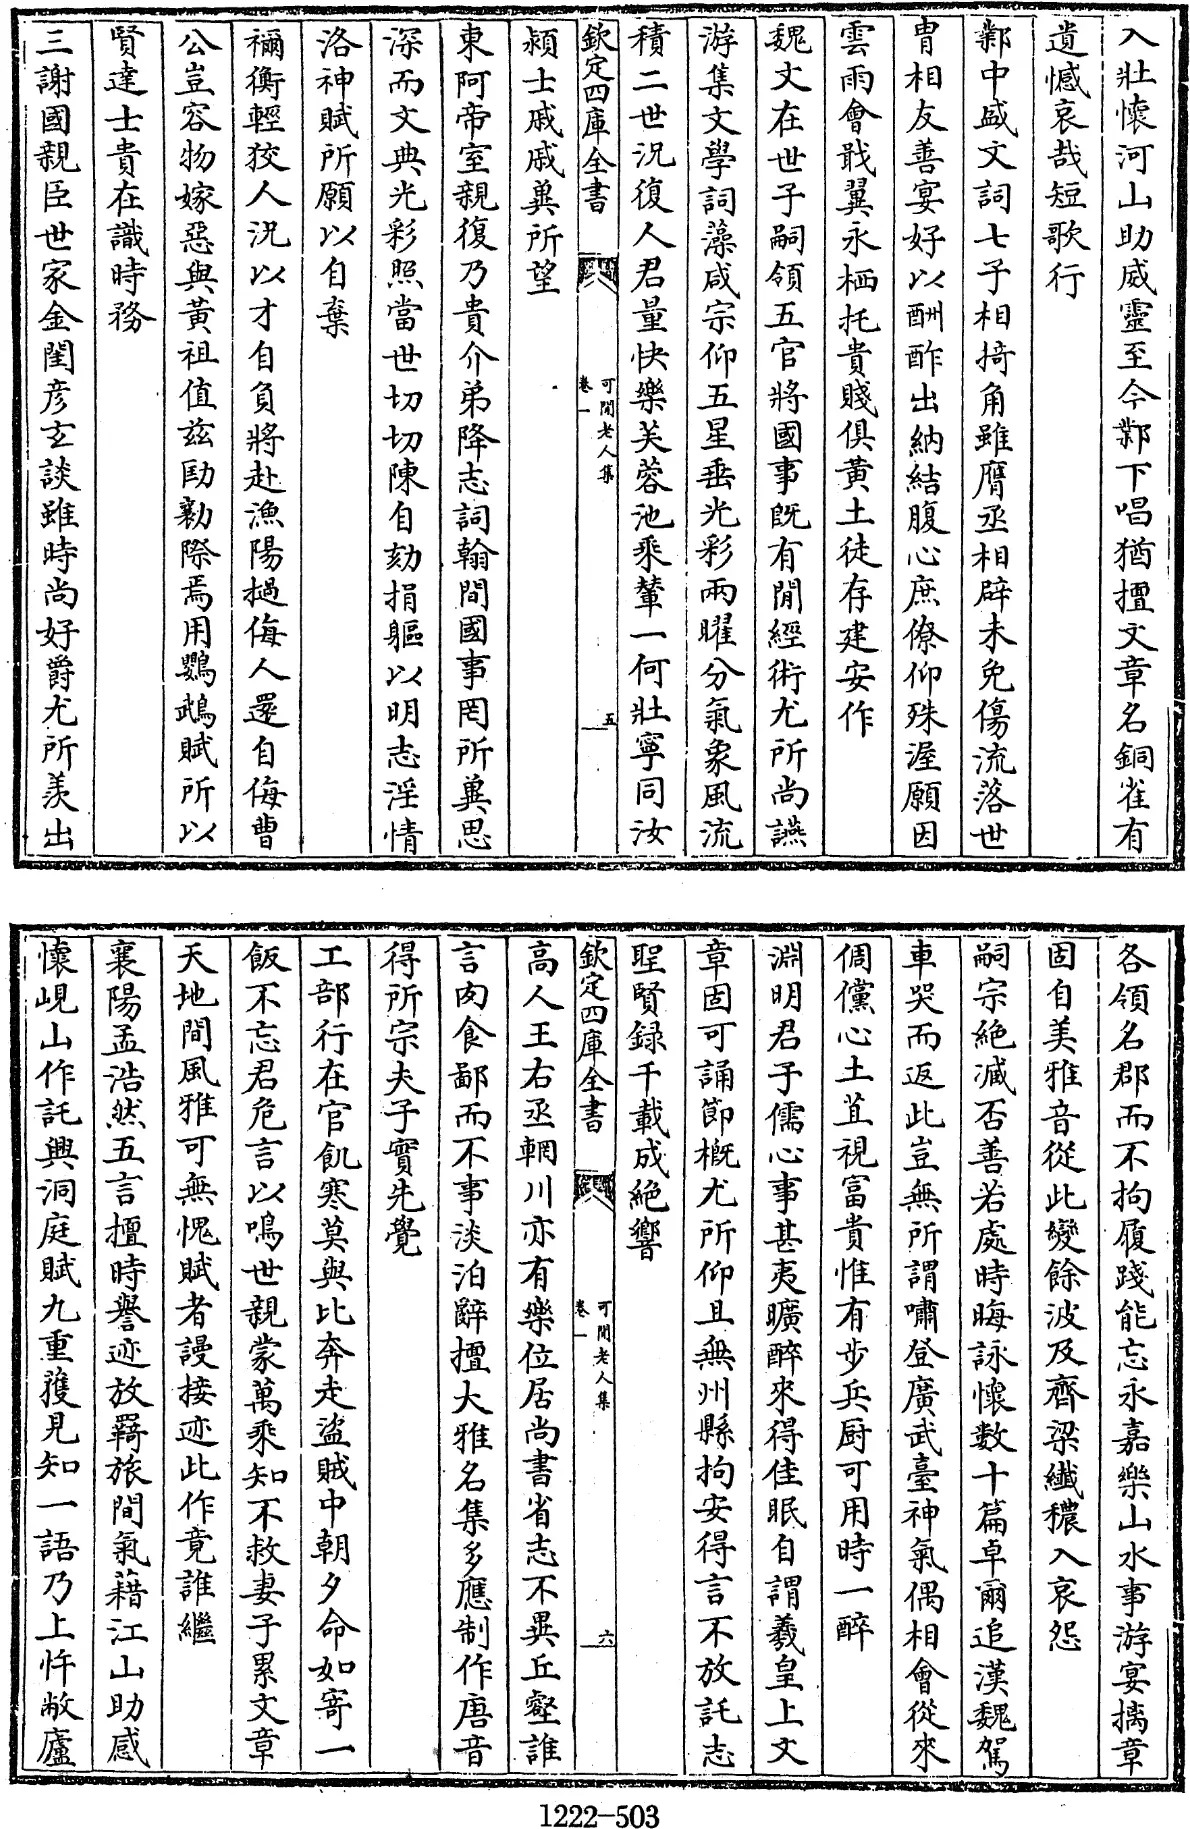 入壯懷河山助威靈至今鄴下唱猶擅文章名銅雀有
遺憾哀哉短歌行
鄴中盛文詞七子相掎角雖膺丞相辟未免傷流落世
胄相友善宴好以酬酢出納結腹心庶僚仰殊渥願因
雲雨會戢翼永栖托貴賤俱黃土徒存建安作
魏文在世子嗣領五官將國事既有閒經術尤所尚讌
游集文學詞藻咸宗仰五星垂光彩兩曜分氣象風流
積二世況復人君量快樂芙蓉池乘輦一何壯寧同汝
欽定四庫全書
可閒老人集
卷一
五
潁士戚戚冀所望
東阿帝室親復乃貴介弟降志詞翰間國事罔所冀思
深而文典光彩照當世切切陳自劾捐軀以明志淫情
洛神賦所願以自棄
禰衡輕狡人況以才自負將赴漁陽撾侮人還自侮曹
公豈容物嫁惡與黃祖值兹劻勷際焉用鸚鵡賦所以
賢達士貴在識時務
三謝國親臣世家金閨彦玄談雖時尚好爵尤所羨出
各領名郡而不拘履踐能忘永嘉樂山水事游宴摛章
固自美雅音從此變餘波及齊梁纖穠入哀怨
嗣宗絶臧否善若處時晦詠懷數十篇卓爾追漢魏駕
車哭而返此豈無所謂嘯登廣武臺神氣偶相會從來
倜儻心土苴視富貴惟有步兵厨可用時一醉
淵明君子儒心事甚夷曠醉來得佳眠自謂羲皇上文
章固可誦節概尤所仰且無州縣拘安得言不放託志
聖賢録千載成絶響
欽定四庫全書
可閒老人集
卷一
六
高人王右丞輞川亦有樂位居尚書省志不異丘壑誰
言肉食鄙而不事淡泊辭擅大雅名集多應制作唐音
得所宗夫子實先覺
工部行在官飢寒莫與比奔走盜賊中朝夕命如寄一
飯不忘君危言以鳴世親蒙萬乘知不救妻子累文章
天地間風雅可無愧賦者謾接迹此作竟誰繼
襄陽孟浩然五言擅時譽迹放羇旅間氣藉江山助感
懷峴山作託興洞庭賦九重獲見知一語乃上忤敝廬
1222-503